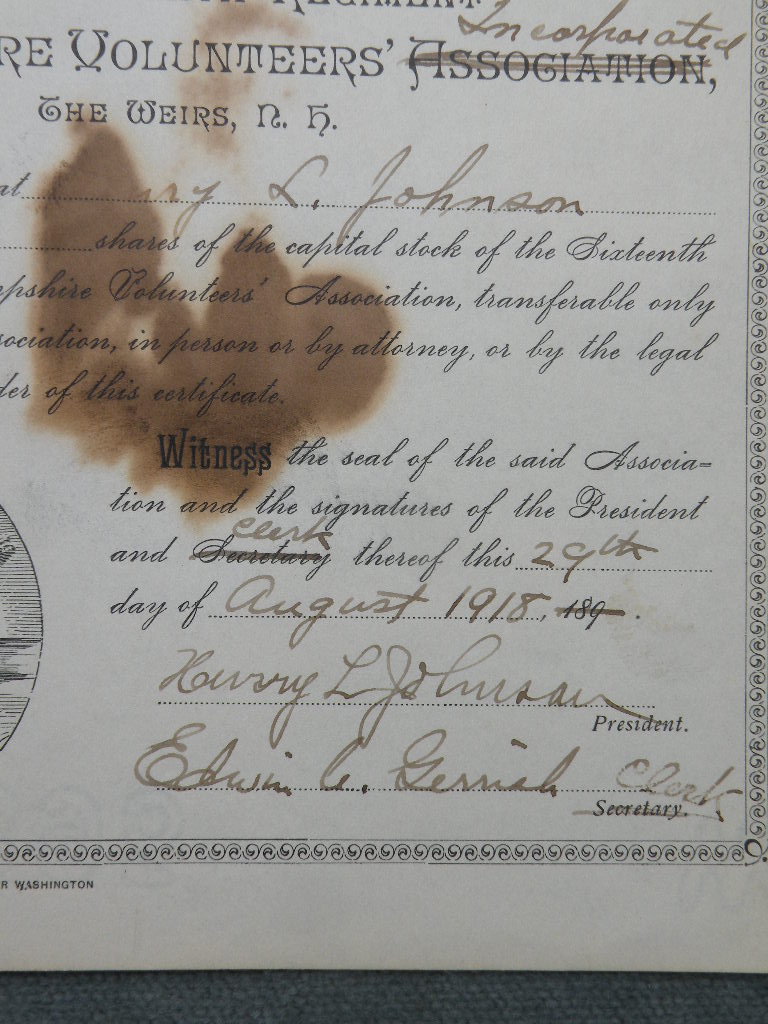 REGIMENT
Incorporated
RE VOLUNTEERS' ASSOCIATION,
THE WEIRS, N. H.
at ry L. Johnson
shares of the capital stock of the Sixteenth
pshire Volunteers' Association, transferable only
ociation, in person or by attorney, or by the legal
der of this certificate.
Witness the seal of the said Associa=
tion and the signatures of the President
clerk
and Secretary thereof this 29th
day of August 1918, 189 .
Harry L Johnson
President.
Edwin C. Gerrish Clerk
Secretary.
R WASHINGTON